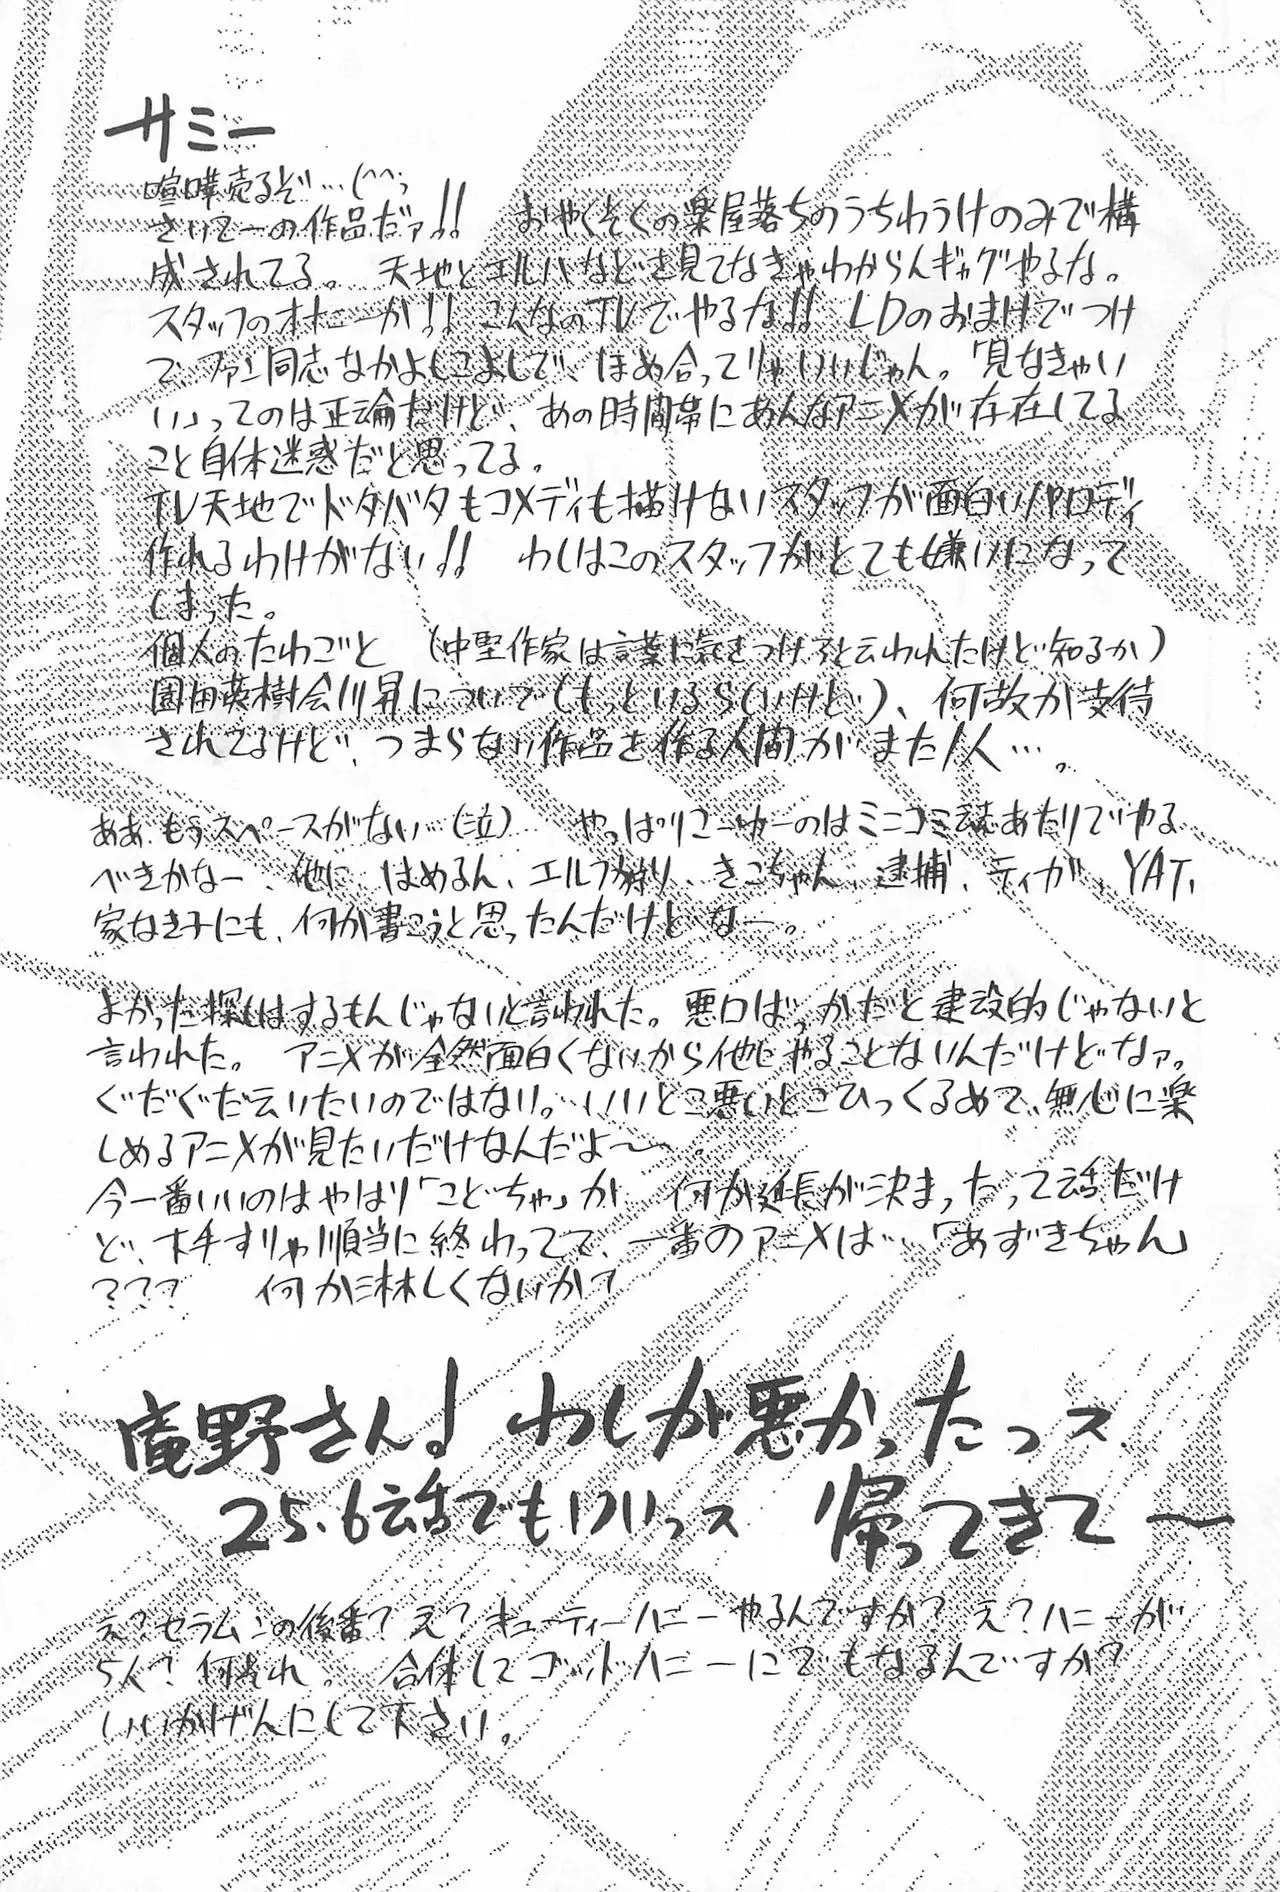 サミー
喧嘩売るぞ…(^^;
さいてーの作品だァ!! おやくそくの楽屋落ちのうちわうけのみで構
成されてる。 天地とエルハなどを見てなきゃわからんギャグやるな。
スタッフのオナニーか!! こんなのTVでやるな!! LDのおまけでつけ
て、ファン同志なかよしこよしで、ほめ合ってりゃいいじゃん。「見なきゃい
い」ってのは正論だけど、あの時間帯にあんなアニメが存在してる
こと自体迷惑だと思ってる。
TV天地でドタバタもコメディも描けないスタッフが面白いパロディ
作れるわけがない!! わしはこのスタッフがとても嫌いになって
しまった。
個人のたわごと (中堅作家は言葉に気をつけろと云われたけど知るか)
園田英樹会川昇について(もっといるらしいけど)、何故か支持
されてるけど、つまらない作品を作る人間がまた1人…。
ああ、もうスペースがない…(泣) やっぱりこーゆーのはミニコミ誌あたりでやる
べきかなー、他に、はめるん、エルフ狩り、きこちゃん、逮捕、ティガ、YAT、
家なき子にも、何か書こうと思ったんだけどなー。
よかった探しはするもんじゃないと言われた。悪口ばっかだと建設的じゃないと
言われた。 アニメが全然面白くないから他にやることないんだけどなァ。
ぐだぐだ云いたいのではない。いいとこ悪いとこひっくるめて、無心に楽
しめるアニメが見たいだけなんだよ〜。
今一番いいのはやはり「こどちゃ」か 何か延長が決まったって話だけ
ど、ホントすりゃ順当に終わってて、一番のアニメは…「あずきちゃん」
??? 何か淋しくないか?
庵野さん! わしが悪かったっス
25.6話でもいいっス 帰ってきて〜
え?セラムンの後番?え?キューティーハニーやるんですか?え?ハニーが
5人?何それ。 合体してゴッドハニーにでもなるんですか?
いいかげんにして下さい。